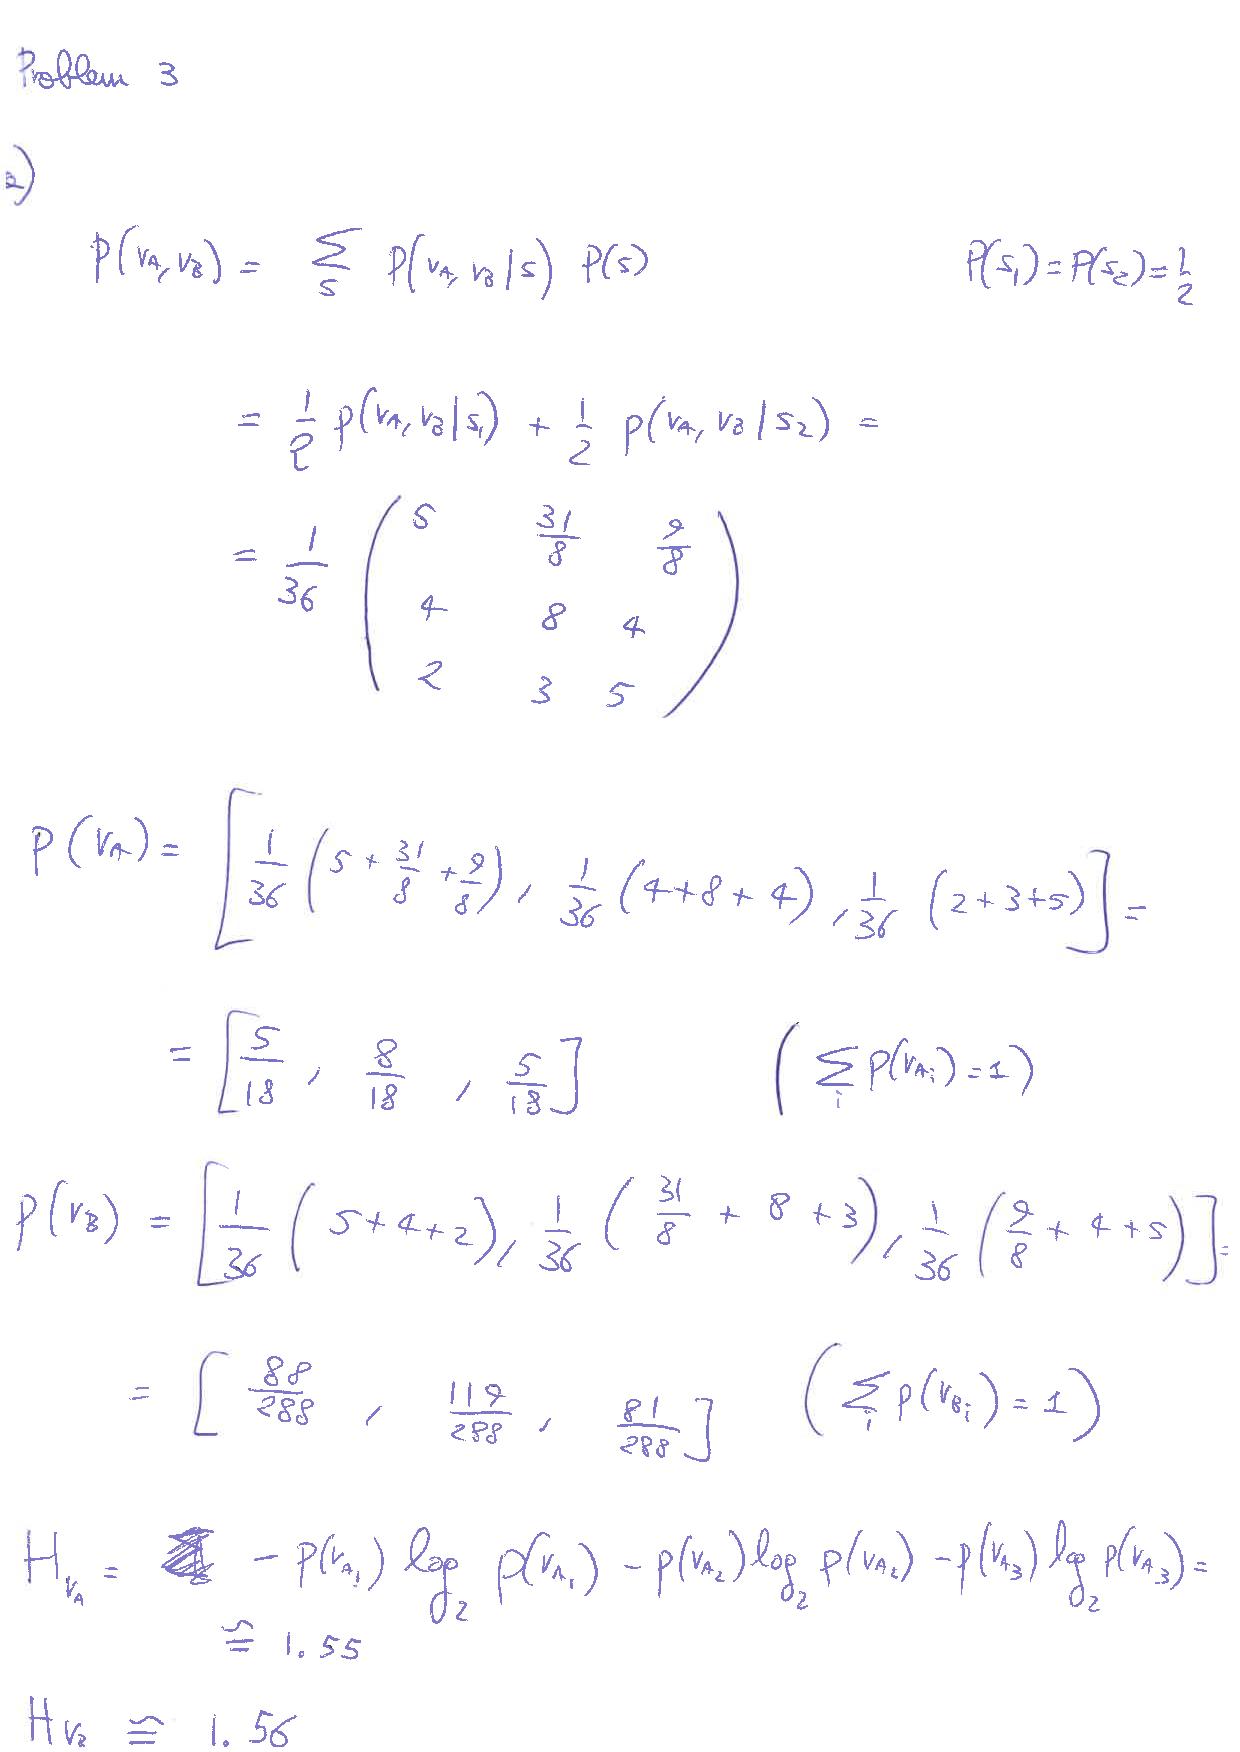 Problem 3
a)
P(vA, vB) = Σ_s P(vA, vB | s) P(s)    P(s1) = P(s2) = 1/2
= 1/2 p(vA, vB | s1) + 1/2 p(vA, vB | s2) =
= 1/36 ( 5  31/8  9/8
4  8  4
2  3  5 )
P(vA) = [ 1/36 (5 + 31/8 + 9/8), 1/36 (4+8+4), 1/36 (2+3+5) ] =
= [ 5/18, 8/18, 5/18 ]    ( Σ_i P(vAi) = 1 )
P(vB) = [ 1/36 (5+4+2), 1/36 (31/8 + 8 + 3), 1/36 (9/8 + 4 + 5) ] =
= [ 88/288, 119/288, 81/288 ]    ( Σ_i p(vBi) = 1 )
H_vA = - p(vA1) log_2 p(vA1) - p(vA2) log_2 p(vA2) - p(vA3) log_2 p(vA3) =
≅ 1.55
H_vB ≅ 1.56